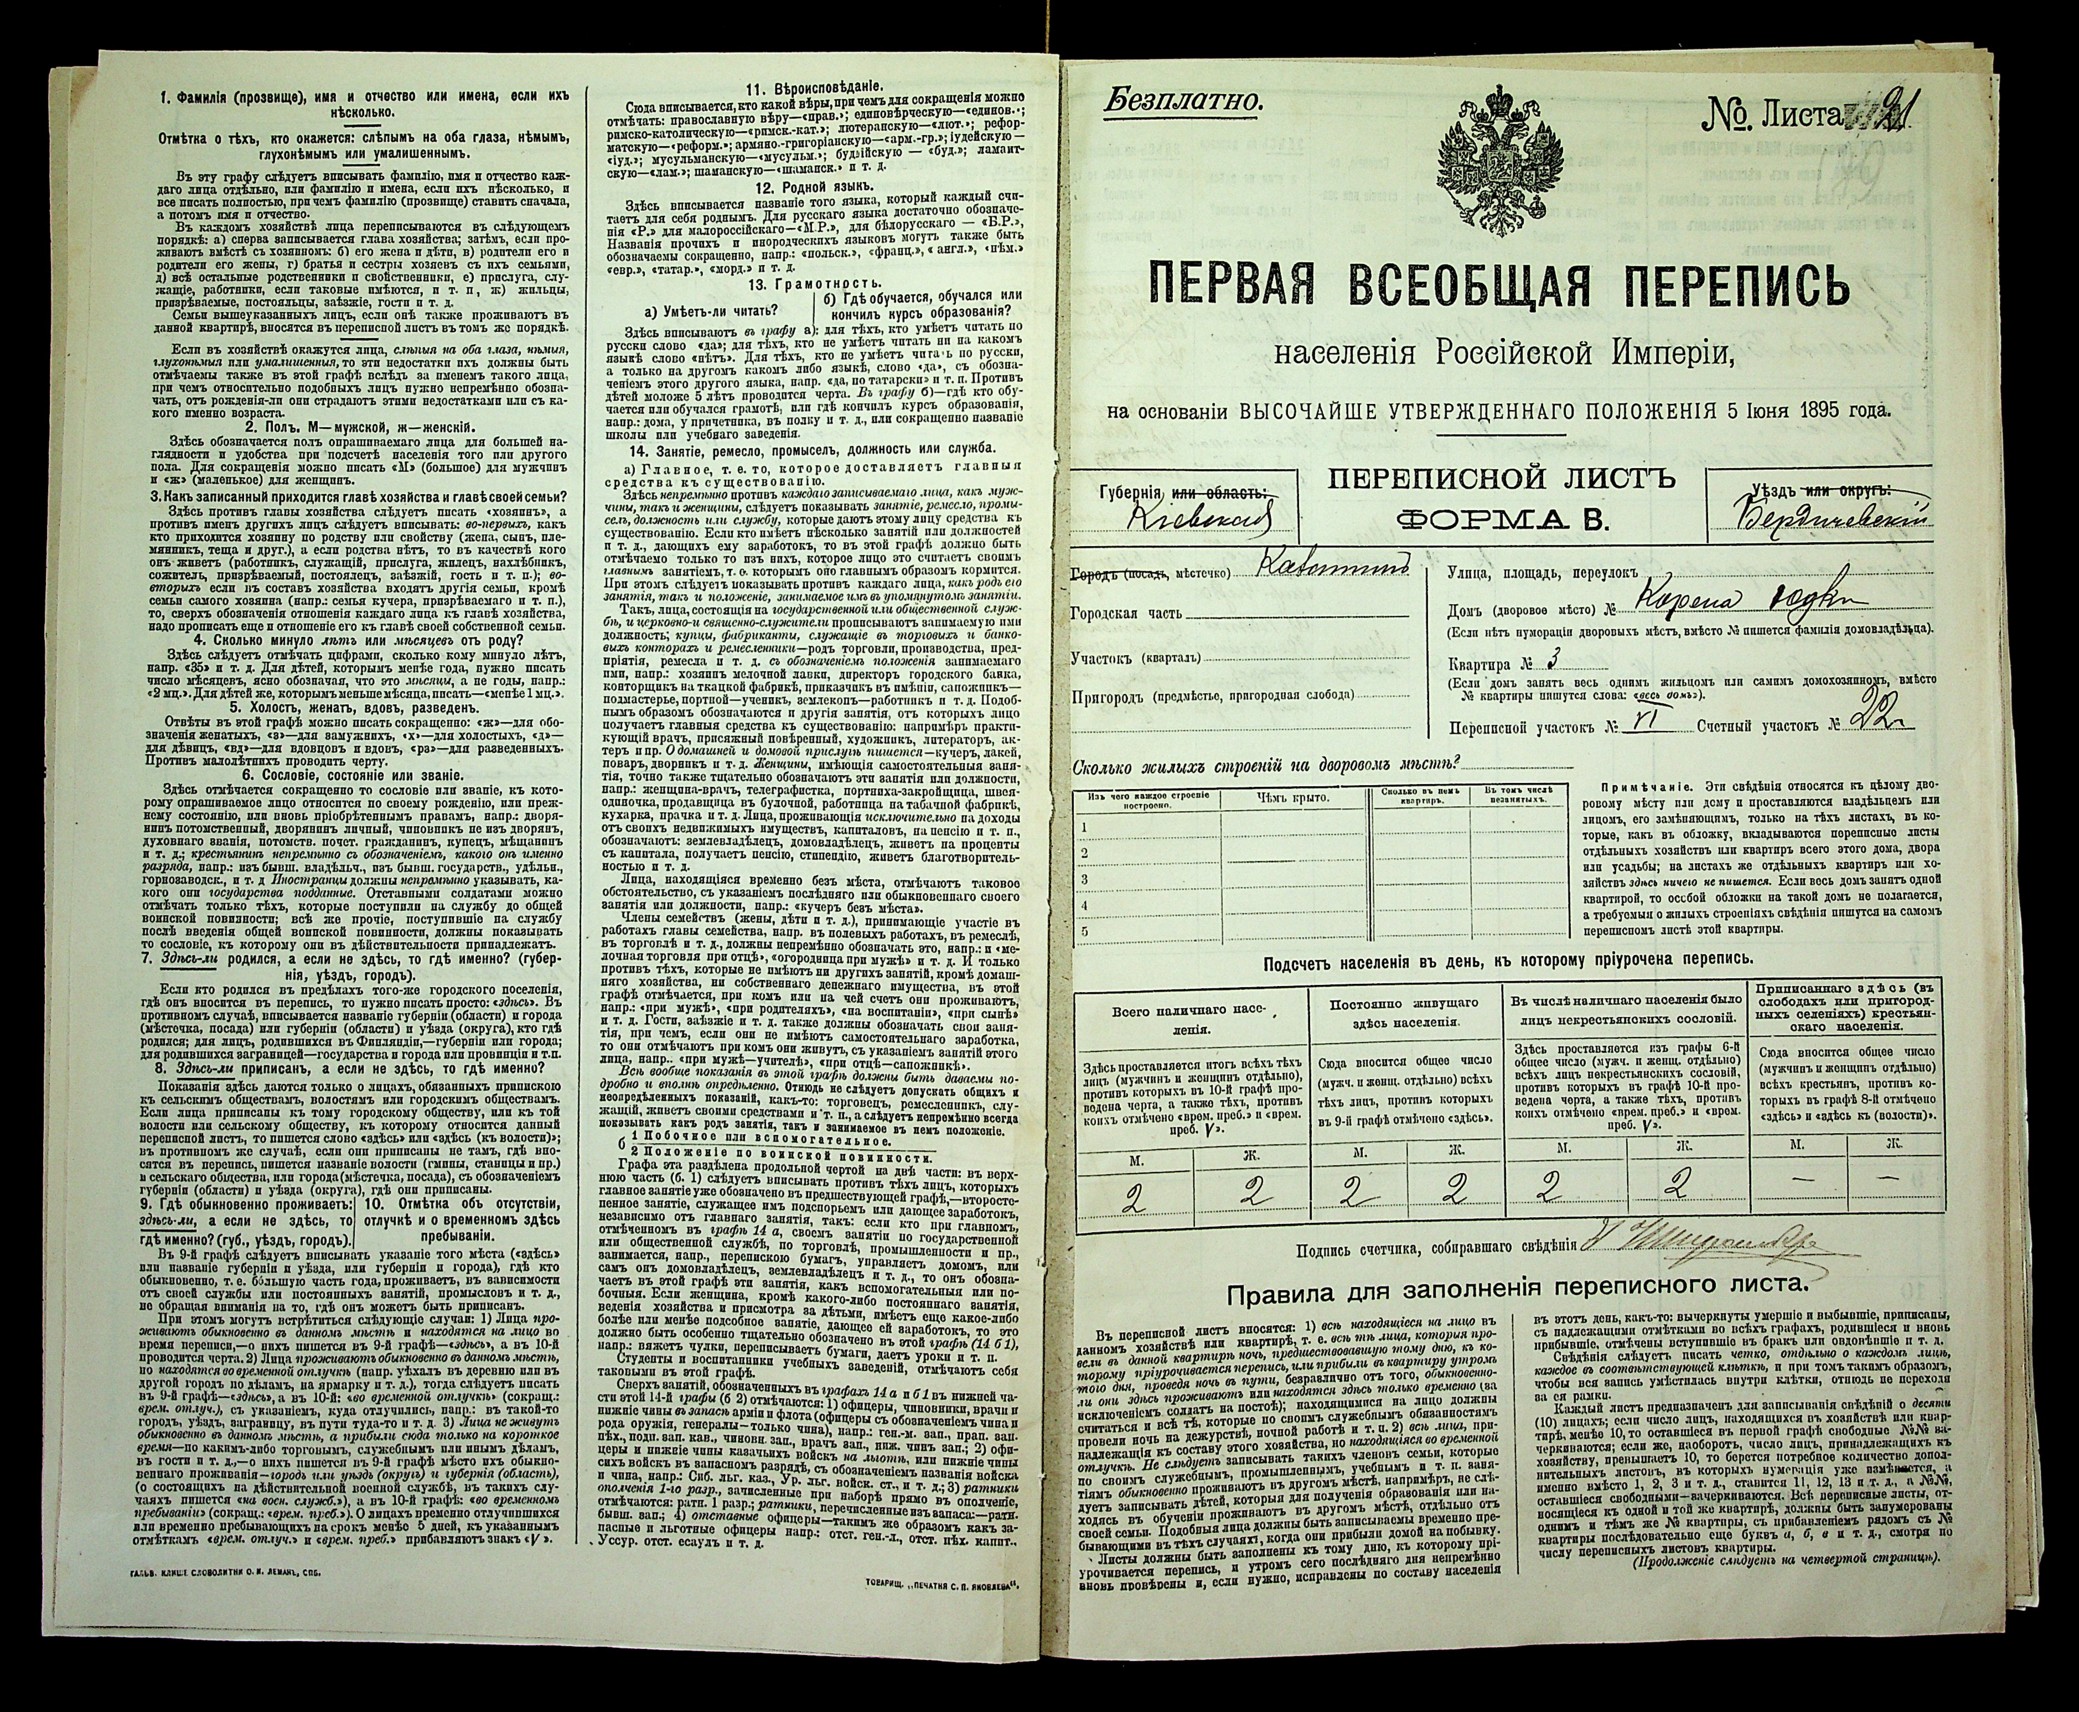 1. Фамилія (прозвище), имя и отчество или имена, если ихъ
нѣсколько.
Отмѣтка о тѣхъ, кто окажется: слѣпымъ на оба глаза, нѣмымъ,
глухонѣмымъ или умалишеннымъ.
Въ эту графу слѣдуетъ вписывать фамилію, имя и отчество каж-
даго лица отдѣльно, или фамилію и имена, если ихъ нѣсколько, и
все писать полностью, при чемъ фамилію (прозвище) ставить сначала,
а потомъ имя и отчество.
Въ каждомъ хозяйствѣ лица переписываются въ слѣдующемъ
порядкѣ: а) сперва записывается глава хозяйства; затѣмъ, если про-
живаютъ вмѣстѣ съ хозяиномъ: б) его жена и дѣти, в) родители его и
родители его жены, г) братья и сестры хозяевъ съ ихъ семьями,
д) всѣ остальные родственники и свойственники, е) прислуга, слу-
жащіе, работники, если таковые имѣются, и т. п, ж) жильцы,
призрѣваемые, постояльцы, заѣзжіе, гости и т. п.
Семьи вышеуказанныхъ лицъ, если онѣ также проживаютъ въ
данной квартирѣ, вносятся въ переписной листъ въ томъ же порядкѣ.
Если въ хозяйствѣ окажутся лица, слѣпыя на оба глаза, нѣмыя,
глухонѣмыя или умалишенныя, то эти недостатки ихъ должны быть
отмѣчаемы также въ этой графѣ вслѣдъ за именемъ такого лица,
при чемъ относительно подобныхъ лицъ нужно непремѣнно обозна-
чать, отъ рожденія-ли они страдаютъ этими недостатками или съ ка-
кого именно возраста.
2. Полъ. М—мужской, ж—женскій.
Здѣсь обозначается полъ опрашиваемаго лица для большей на-
глядности и удобства при подсчетѣ населенія того или другого
пола. Для сокращенія можно писать «М» (большое) для мужчинъ
и «ж» (маленькое) для женщинъ.
3. Какъ записанный приходится главѣ хозяйства и главѣ своей семьи?
Здѣсь противъ главы хозяйства слѣдуетъ писать «хозяинъ», а
противъ именъ другихъ лицъ слѣдуетъ вписывать: во-первыхъ, какъ
кто приходится хозяину по родству или свойству (жена, сынъ, пле-
мянникъ, теща и друг.), а если родства нѣтъ, то въ качествѣ кого
онъ живетъ (работникъ, служащій, прислуга, жилецъ, нахлѣбникъ,
сожитель, призрѣваемый, постоялецъ, заѣзжій, гость и т. п.); во-
вторыхъ если въ составъ хозяйства входятъ другія семьи, кромѣ
семьи самого хозяина (напр.: семья кучера, призрѣваемаго и т. п.),
то, сверхъ обозначенія отношенія каждаго лица къ главѣ хозяйства,
надо прописать еще и отношеніе его къ главѣ своей собственной семьи.
4. Сколько минуло лѣтъ или мѣсяцевъ отъ роду?
Здѣсь слѣдуетъ отмѣчать цифрами, сколько кому минуло лѣтъ,
напр. «35» и т. д. Для дѣтей, которымъ менѣе года, нужно писать
число мѣсяцевъ, ясно обозначая, что это мѣсяцы, а не годы, напр.:
«2 мц.». Для дѣтей же, которымъ меньше мѣсяца, писать—«менѣе 1 мц.».
5. Холостъ, женатъ, вдовъ, разведенъ.
Отвѣты въ этой графѣ можно писать сокращенно: «ж»—для обо-
значенія женатыхъ, «з»—для замужнихъ, «х»—для холостыхъ, «д»—
для дѣвицъ, «вд»—для вдовцовъ и вдовъ, «рз»—для разведенныхъ.
Противъ малолѣтнихъ проводить черту.
6. Сословіе, состояніе или званіе.
Здѣсь отмѣчается сокращенно то сословіе или званіе, къ кото-
рому опрашиваемое лицо относится по своему рожденію, или преж-
нему состоянію, или вновь пріобрѣтеннымъ правамъ, напр.: дворя-
нинъ потомственный, дворянинъ личный, чиновникъ не изъ дворянъ,
духовнаго званія, потомств. почет. гражданинъ, купецъ, мѣщанинъ
и т. д.; крестьянинъ непремѣнно съ обозначеніемъ, какого онъ именно
разряда, напр.: изъ бывш. владѣльч., изъ бывш. государств., удѣльн.,
горнозаводск., и т. д Иностранцы должны непремѣнно указывать, ка-
кого они государства подданные. Отставными солдатами можно
отмѣчать только тѣхъ, которые поступили на службу до общей
воинской повинности; всѣ же прочіе, поступившіе на службу
послѣ введенія общей воинской повинности, должны показывать
то сословіе, къ которому они въ дѣйствительности принадлежатъ.
7. Здѣсь-ли родился, а если не здѣсь, то гдѣ именно? (губер-
нія, уѣздъ, городъ).
Если кто родился въ предѣлахъ того-же городского поселенія,
гдѣ онъ вносится въ перепись, то нужно писать просто: «здѣсь». Въ
противномъ случаѣ, вписывается названіе губерніи (области) и города
(мѣстечка, посада) или губерніи (области) и уѣзда (округа), кто гдѣ
родился; для лицъ, родившихся въ Финляндіи,—губерніи или города;
для родившихся заграницей—государства и города или провинціи и т.п.
8. Здѣсь-ли приписанъ, а если не здѣсь, то гдѣ именно?
Показанія здѣсь даются только о лицахъ, обязанныхъ припискою
къ сельскимъ обществамъ, волостямъ или городскимъ обществамъ.
Если лица приписаны къ тому городскому обществу, или къ той
волости или сельскому обществу, къ которому относится данный
переписной листъ, то пишется слово «здѣсь» или «здѣсь (къ волости)»;
въ противномъ же случаѣ, если они приписаны не тамъ, гдѣ вно-
сятся въ перепись, пишется названіе волости (гмины, станицы и пр.)
и сельскаго общества, или города (мѣстечка, посада), съ обозначеніемъ
губерніи (области) и уѣзда (округа), гдѣ они приписаны.
9. Гдѣ обыкновенно проживаетъ:
здѣсь-ли, а если не здѣсь, то
гдѣ именно? (губ., уѣздъ, городъ).
10. Отмѣтка объ отсутствіи,
отлучкѣ и о временномъ здѣсь
пребываніи.
Въ 9-й графѣ слѣдуетъ вписывать указаніе того мѣста («здѣсь»
или названіе губерніи и уѣзда, или губерніи и города), гдѣ кто
обыкновенно, т. е. бо́льшую часть года, проживаетъ, въ зависимости
отъ своей службы или постоянныхъ занятій, промысловъ и т. д.,
не обращая вниманія на то, гдѣ онъ можетъ быть приписанъ.
При этомъ могутъ встрѣтиться слѣдующіе случаи: 1) Лица про-
живаютъ обыкновенно въ данномъ мѣстѣ и находятся на лицо во
время переписи,—о нихъ пишется въ 9-й графѣ—«здѣсь», а въ 10-й
проводится черта. 2) Лица проживаютъ обыкновенно въ данномъ мѣстѣ,
но находятся во временной отлучкѣ (напр. уѣхалъ въ деревню или въ
другой городъ по дѣламъ, на ярмарку и т. д.), тогда слѣдуетъ писать
въ 9-й графѣ—«здѣсь», а въ 10-й: «во временной отлучкѣ» (сокращ.:
врем. отлуч.), съ указаніемъ, куда отлучились, напр.: въ такой-то
городъ, уѣздъ, заграницу, въ пути туда-то и т. д. 3) Лица не живутъ
обыкновенно въ данномъ мѣстѣ, а прибыли сюда только на короткое
время—по какимъ-либо торговымъ, служебнымъ или инымъ дѣламъ,
въ гости и т. д.,—о нихъ пишется въ 9-й графѣ мѣсто ихъ обыкно-
веннаго проживанія—городъ или уѣздъ (округъ) и губернія (область),
(о состоящихъ на дѣйствительной военной службѣ, въ такихъ слу-
чаяхъ пишется «на воен. служб.»), а въ 10-й графѣ: «во временномъ
пребываніи» (сокращ.: «врем. преб.»). О лицахъ временно отлучившихся
или временно пребывающихъ на срокъ менѣе 5 дней, къ указаннымъ
отмѣткамъ «врем. отлуч.» и «врем. преб.» прибавляютъ знакъ «V».
ГАЛЬВ. КЛИШЕ СЛОВОЛИТНИ О. И. ЛЕМАНЪ, СПБ.
11. Вѣроисповѣданіе.
Сюда вписывается, кто какой вѣры, при чемъ для сокращенія можно
отмѣчать: православную вѣру—«прав.»; единовѣрческую—«единов.»;
римско-католическую—«римск.-кат.»; лютеранскую—«лют.»; рефор-
матскую—«реформ.»; армяно.-григоріанскую—«арм.-гр.»; іудейскую —
«іуд.»; мусульманскую—«мусульм.»; буддійскую — «буд.»; ламаит-
скую—«лам.»; шаманскую—«шаманск.» и т. д.
12. Родной языкъ.
Здѣсь вписывается названіе того языка, который каждый счи-
таетъ для себя роднымъ. Для русскаго языка достаточно обозначе-
нія «Р.» для малороссійскаго—«М.Р.», для бѣлорусскаго — «Б.Р.».
Названія прочихъ и инородческихъ языковъ могутъ также быть
обозначаемы сокращенно, напр.: «польск.», «франц.», « англ.», «нѣм.»
«евр.», «татар.», «морд.» и т. д.
13. Грамотность.
а) Умѣетъ-ли читать?
б) Гдѣ обучается, обучался или
кончилъ курсъ образованія?
Здѣсь вписываютъ въ графу а): для тѣхъ, кто умѣетъ читать по
русски слово «да»; для тѣхъ, кто не умѣетъ читать ни на какомъ
языкѣ слово «нѣтъ». Для тѣхъ, кто не умѣетъ читать по русски,
а только на другомъ какомъ либо языкѣ, слово «да», съ обозна-
ченіемъ этого другого языка, напр. «да, по татарски» и т. п. Противъ
дѣтей моложе 5 лѣтъ проводится черта. Въ графу б)—гдѣ кто обу-
чается или обучался грамотѣ, или гдѣ кончилъ курсъ образованія,
напр.: дома, у причетника, въ полку и т. д., или сокращенно названіе
школы или учебнаго заведенія.
14. Занятіе, ремесло, промыселъ, должность или служба.
а) Главное, т. е. то, которое доставляетъ главныя
средства къ существованію.
Здѣсь непремѣнно противъ каждаго записываемаго лица, какъ муж-
чины, такъ и женщины, слѣдуетъ показывать занятіе, ремесло, промы-
селъ, должность или службу, которые даютъ этому лицу средства къ
существованію. Если кто имѣетъ нѣсколько занятій или должностей
и т. д., дающихъ ему заработокъ, то въ этой графѣ должно быть
отмѣчаемо только то изъ нихъ, которое лицо это считаетъ своимъ
главнымъ занятіемъ, т. е. которымъ оно главнымъ образомъ кормится.
При этомъ слѣдуетъ показывать противъ каждаго лица, какъ родъ его
занятія, такъ и положеніе, занимаемое имъ въ упомянутомъ занятіи.
Такъ, лица, состоящія на государственной или общественной служ-
бѣ, и церковно-и священно-служители прописываютъ занимаемую ими
должность; купцы, фабриканты, служащіе въ торговыхъ и банко-
выхъ конторахъ и ремесленники—родъ торговли, производства, пред-
пріятія, ремесла и т. д. съ обозначеніемъ положенія занимаемаго
ими, напр.: хозяинъ мелочной лавки, директоръ городского банка,
конторщикъ на ткацкой фабрикѣ, приказчикъ въ имѣніи, сапожникъ—
подмастерье, портной—ученикъ, землекопъ—работникъ и т. д. Подоб-
нымъ образомъ обозначаются и другія занятія, отъ которыхъ лицо
получаетъ главныя средства къ существованію: напримѣръ практи-
кующій врачъ, присяжный повѣренный, художникъ, литераторъ, ак-
теръ и пр. О домашней и домовой прислугѣ пишется—кучеръ, лакей,
поваръ, дворникъ и т. д. Женщины, имѣющія самостоятельныя заня-
тія, точно также тщательно обозначаютъ эти занятія или должности,
напр.: женщина-врачъ, телеграфистка, портниха-закройщица, швея-
одиночка, продавщица въ булочной, работница на табачной фабрикѣ,
кухарка, прачка и т. д. Лица, проживающія исключительно на доходы
отъ своихъ недвижимыхъ имуществъ, капиталовъ, на пенсію и т. п.,
обозначаютъ: землевладѣлецъ, домовладѣлецъ, живетъ на проценты
съ капитала, получаетъ пенсію, стипендію, живетъ благотворитель-
ностью и т. д.
Лица, находящіяся временно безъ мѣста, отмѣчаютъ таковое
обстоятельство, съ указаніемъ послѣдняго или обыкновеннаго своего
занятія или должности, напр.: «кучеръ безъ мѣста».
Члены семействъ (жены, дѣти и т. д.), принимающіе участіе въ
работахъ главы семейства, напр. въ полевыхъ работахъ, въ ремеслѣ,
въ торговлѣ и т. д., должны непремѣнно обозначать это, напр.: и «ме-
лочная торговля при отцѣ», «огородница при мужѣ» и т. д. И только
противъ тѣхъ, которые не имѣютъ ни другихъ занятій, кромѣ домаш-
няго хозяйства, ни собственнаго денежнаго имущества, въ этой
графѣ отмѣчается, при комъ или на чей счетъ они проживаютъ,
напр.: «при мужѣ», «при родителяхъ», «на воспитаніи», «при сынѣ»
и т. д. Гости, заѣзжіе и т. д. также должны обозначать свои заня-
тія, при чемъ, если они не имѣютъ самостоятельнаго заработка,
то они отмѣчаютъ при комъ они живутъ, съ указаніемъ занятій этого
лица, напр.. «при мужѣ—учителѣ», «при отцѣ—сапожникѣ».
Всѣ вообще показанія въ этой графѣ должны быть даваемы по-
дробно и вполнѣ опредѣленно. Отнюдь не слѣдуетъ допускать общихъ и
неопредѣленныхъ показаній, какъ-то: торговецъ, ремесленникъ, слу-
жащій, живетъ своими средствами и т. п., а слѣдуетъ непремѣнно всегда
показывать какъ родъ занятія, такъ и занимаемое въ немъ положеніе.
б 1 Побочное или вспомогательное.
2 Положеніе по воинской повинности.
Графа эта раздѣлена продольной чертой на двѣ части: въ верх-
нюю часть (б. 1) слѣдуетъ вписывать противъ тѣхъ лицъ, которыхъ
главное занятіе уже обозначено въ предшествующей графѣ,—второсте-
пенное занятіе, служащее имъ подспорьемъ или дающее заработокъ,
независимо отъ главнаго занятія, такъ: если кто при главномъ,
отмѣченномъ въ графѣ 14 а, своемъ занятіи по государственной
или общественной службѣ, по торговлѣ, промышленности и пр.,
занимается, напр., перепискою бумагъ, управляетъ домомъ, или
самъ онъ домовладѣлецъ, землевладѣлецъ и т. д., то онъ обозна-
чаетъ въ этой графѣ эти занятія, какъ вспомогательныя или по-
бочныя. Если женщина, кромѣ какого-либо постояннаго занятія,
веденія хозяйства и присмотра за дѣтьми, имѣетъ еще какое-либо
болѣе или менѣе подсобное занятіе, дающее ей заработокъ, то это
должно быть особенно тщательно обозначено въ этой графѣ (14 б 1),
напр.: вяжетъ чулки, переписываетъ бумаги, даетъ уроки и т. п.
Студенты и воспитанники учебныхъ заведеній, отмѣчаютъ себя
таковыми въ этой графѣ.
Сверхъ занятій, обозначенныхъ въ графахъ 14 а и б 1 въ нижней ча-
сти этой 14-й графы (б 2) отмѣчаются: 1) офицеры, чиновники, врачи и
нижніе чины въ запасѣ арміи и флота (офицеры съ обозначеніемъ чина и
рода оружія, генералы—только чина), напр.: ген.-м. зап., прап. зап.
пѣх., подп. зап. кав., чиновн. зап., врачъ зап., ниж. чинъ зап.; 2) офи-
церы и нижніе чины казачьихъ войскъ на льготѣ, или нижніе чины
сихъ войскъ въ запасномъ разрядѣ, съ обозначеніемъ названія войска
и чина, напр.: Сиб. льг. каз., Ур. льг. войск. ст., и т. д.; 3) ратники
ополченія 1-го разр., зачисленные при наборѣ прямо въ ополченіе,
отмѣчаются: ратн. 1 разр.; ратники, перечисленные изъ запаса:—ратн.
бывш. зап.; 4) отставные офицеры—такимъ же образомъ какъ за-
пасные и льготные офицеры напр.: отст. ген.-л., отст. пѣх. капит.,
Уссур. отст. есаулъ и т. д.
ТОВАРИЩ. „ПЕЧАТНЯ С. П. ЯКОВЛЕВА“.
Безплатно.
№. Листа 21
ПЕРВАЯ ВСЕОБЩАЯ ПЕРЕПИСЬ
населенія Россійской Имперіи,
на основаніи ВЫСОЧАЙШЕ УТВЕРЖДЕННАГО ПОЛОЖЕНІЯ 5 Іюня 1895 года.
Губернія или область:
Кіевская
ПЕРЕПИСНОЙ ЛИСТЪ
ФОРМА В.
Уѣздъ или округъ:
Бердичевскій
Городъ (посадъ, мѣстечко)
Городская часть
Участокъ (кварталъ)
Пригородъ (предмѣстье, пригородная слобода)
Улица, площадь, переулокъ
Домъ (дворовое мѣсто) №
(Если нѣтъ нумораціи дворовыхъ мѣстъ, вмѣсто № пишется фамилія домовладѣльца).
Квартира № 3
(Если домъ занятъ весь однимъ жильцомъ или самимъ домохозяиномъ, вмѣсто
№ квартиры пишутся слова: «весь домъ»).
Переписной участокъ № VI Счетный участокъ № 22
Сколько жилыхъ строеній на дворовомъ мѣстѣ?
Изъ чего каждое строеніе построено. Чѣмъ крыто. Сколько въ немъ квартиръ. Въ томъ числѣ незанятыхъ.
1
2
3
4
5
Примѣчаніе. Эти свѣдѣнія относятся къ цѣлому дво-
ровому мѣсту или дому и проставляются владѣльцемъ или
лицомъ, его замѣняющимъ, только на тѣхъ листахъ, въ ко-
торые, какъ въ обложку, вкладываются переписные листы
отдѣльныхъ хозяйствъ или квартиръ всего этого дома, двора
или усадьбы; на листахъ же отдѣльныхъ квартиръ или хо-
зяйствъ здѣсь ничего не пишется. Если весь домъ занятъ одной
квартирой, то особой обложки на такой домъ не полагается,
а требуемыя о жилыхъ строеніяхъ свѣдѣнія пишутся на самомъ
переписномъ листѣ этой квартиры.
Подсчетъ населенія въ день, къ которому пріурочена перепись.
Всего наличнаго насе-
ленія.
Здѣсь проставляется итогъ всѣхъ тѣхъ
лицъ (мужчинъ и женщинъ отдѣльно),
противъ которыхъ въ 10-й графѣ про-
ведена черта, а также тѣхъ, противъ
коихъ отмѣчено «врем. преб.» и «врем.
преб. V».
Постоянно живущаго
здѣсь населенія.
Сюда вносится общее число
(мужч. и женщ. отдѣльно) всѣхъ
тѣхъ лицъ, противъ которыхъ
въ 9-й графѣ отмѣчено «здѣсь».
Въ числѣ наличнаго населенія было
лицъ некрестьянскихъ сословій.
Здѣсь проставляется изъ графы 6-й
общее число (мужч. и женщ. отдѣльно)
всѣхъ лицъ некрестьянскихъ сословій,
противъ которыхъ въ графѣ 10-й про-
ведена черта, а также тѣхъ, противъ
коихъ отмѣчено «врем. преб.» и «врем.
преб. V».
Приписаннаго здѣсь (въ
слободахъ или пригород-
ныхъ селеніяхъ) крестьян-
скаго населенія.
Сюда вносится общее число
(мужчинъ и женщинъ отдѣльно)
всѣхъ крестьянъ, противъ ко-
торыхъ въ графѣ 8-й отмѣчено
«здѣсь» и «здѣсь къ (волости)».
М. Ж. М. Ж. М. Ж. М. Ж.
2 2 2 2 2 2 — —
Подпись счетчика, собиравшаго свѣдѣнія
Правила для заполненія переписного листа.
Въ переписной листъ вносятся: 1) всѣ находящіеся на лицо въ
данномъ хозяйствѣ или квартирѣ, т. е. всѣ тѣ лица, которыя про-
вели въ данной квартирѣ ночь, предшествовавшую тому дню, къ ко-
торому пріурочивается перепись, или прибыли въ квартиру утромъ
того дня, проведя ночь въ пути, безразлично отъ того, обыкновенно-
ли они здѣсь проживаютъ или находятся здѣсь только временно (за
исключеніемъ солдатъ на постоѣ); находящимися на лицо должны
считаться и всѣ тѣ, которые по своимъ служебнымъ обязанностямъ
провели ночь на дежурствѣ, ночной работѣ и т. п. 2) всѣ лица, при-
надлежащія къ составу этого хозяйства, но находящіеся во временной
отлучкѣ. Не слѣдуетъ записывать такихъ членовъ семьи, которые
по своимъ служебнымъ, промышленнымъ, учебнымъ и т. п. заня-
тіямъ обыкновенно проживаютъ въ другомъ мѣстѣ, напримѣръ, не слѣ-
дуетъ записывать дѣтей, которыя для полученія образованія или на-
ходясь въ обученіи проживаютъ въ другомъ мѣстѣ, отдѣльно отъ
своей семьи. Подобныя лица должны быть записываемы временно пре-
бывающими въ тѣхъ случаяхъ, когда они прибыли домой на побывку.
Листы должны быть заполнены къ тому дню, къ которому прі-
урочивается перепись, и утромъ сего послѣдняго дня непремѣнно
вновь провѣрены и, если нужно, исправлены по составу населенія
въ этотъ день, какъ-то: вычеркнуты умершіе и выбывшіе, приписаны,
съ надлежащими отмѣтками во всѣхъ графахъ, родившіеся и вновь
прибывшіе, отмѣчены вступившіе въ бракъ или овдовѣвшіе и т. д.
Свѣдѣнія слѣдуетъ писать четко, отдѣльно о каждомъ лицѣ,
каждое въ соотвѣтствующей клѣткѣ, и при томъ такимъ образомъ,
чтобы вся запись умѣстилась внутри клѣтки, отнюдь не переходя
за ея рамки.
Каждый листъ предназначенъ для записыванія свѣдѣній о десяти
(10) лицахъ; если число лицъ, находящихся въ хозяйствѣ или квар-
тирѣ, менѣе 10, то оставшіеся въ первой графѣ свободные №№ за-
черкиваются; если же, наоборотъ, число лицъ, принадлежащихъ къ
хозяйству, превышаетъ 10, то берется потребное количество допол-
нительныхъ листовъ, въ которыхъ нумерація уже измѣняется, а
именно вмѣсто 1, 2, 3 и т. д., ставится 11, 12, 13 и т. д., а №№,
оставшіеся свободными—зачеркиваются. Всѣ переписные листы, от-
носящіеся къ одной и той же квартирѣ, должны быть занумерованы
однимъ и тѣмъ же № квартиры, съ прибавленіемъ рядомъ съ №
квартиры послѣдовательно еще буквъ а, б, в и т. д., смотря по
числу переписныхъ листовъ квартиры.
(Продолженіе слѣдуетъ на четвертой страницѣ).